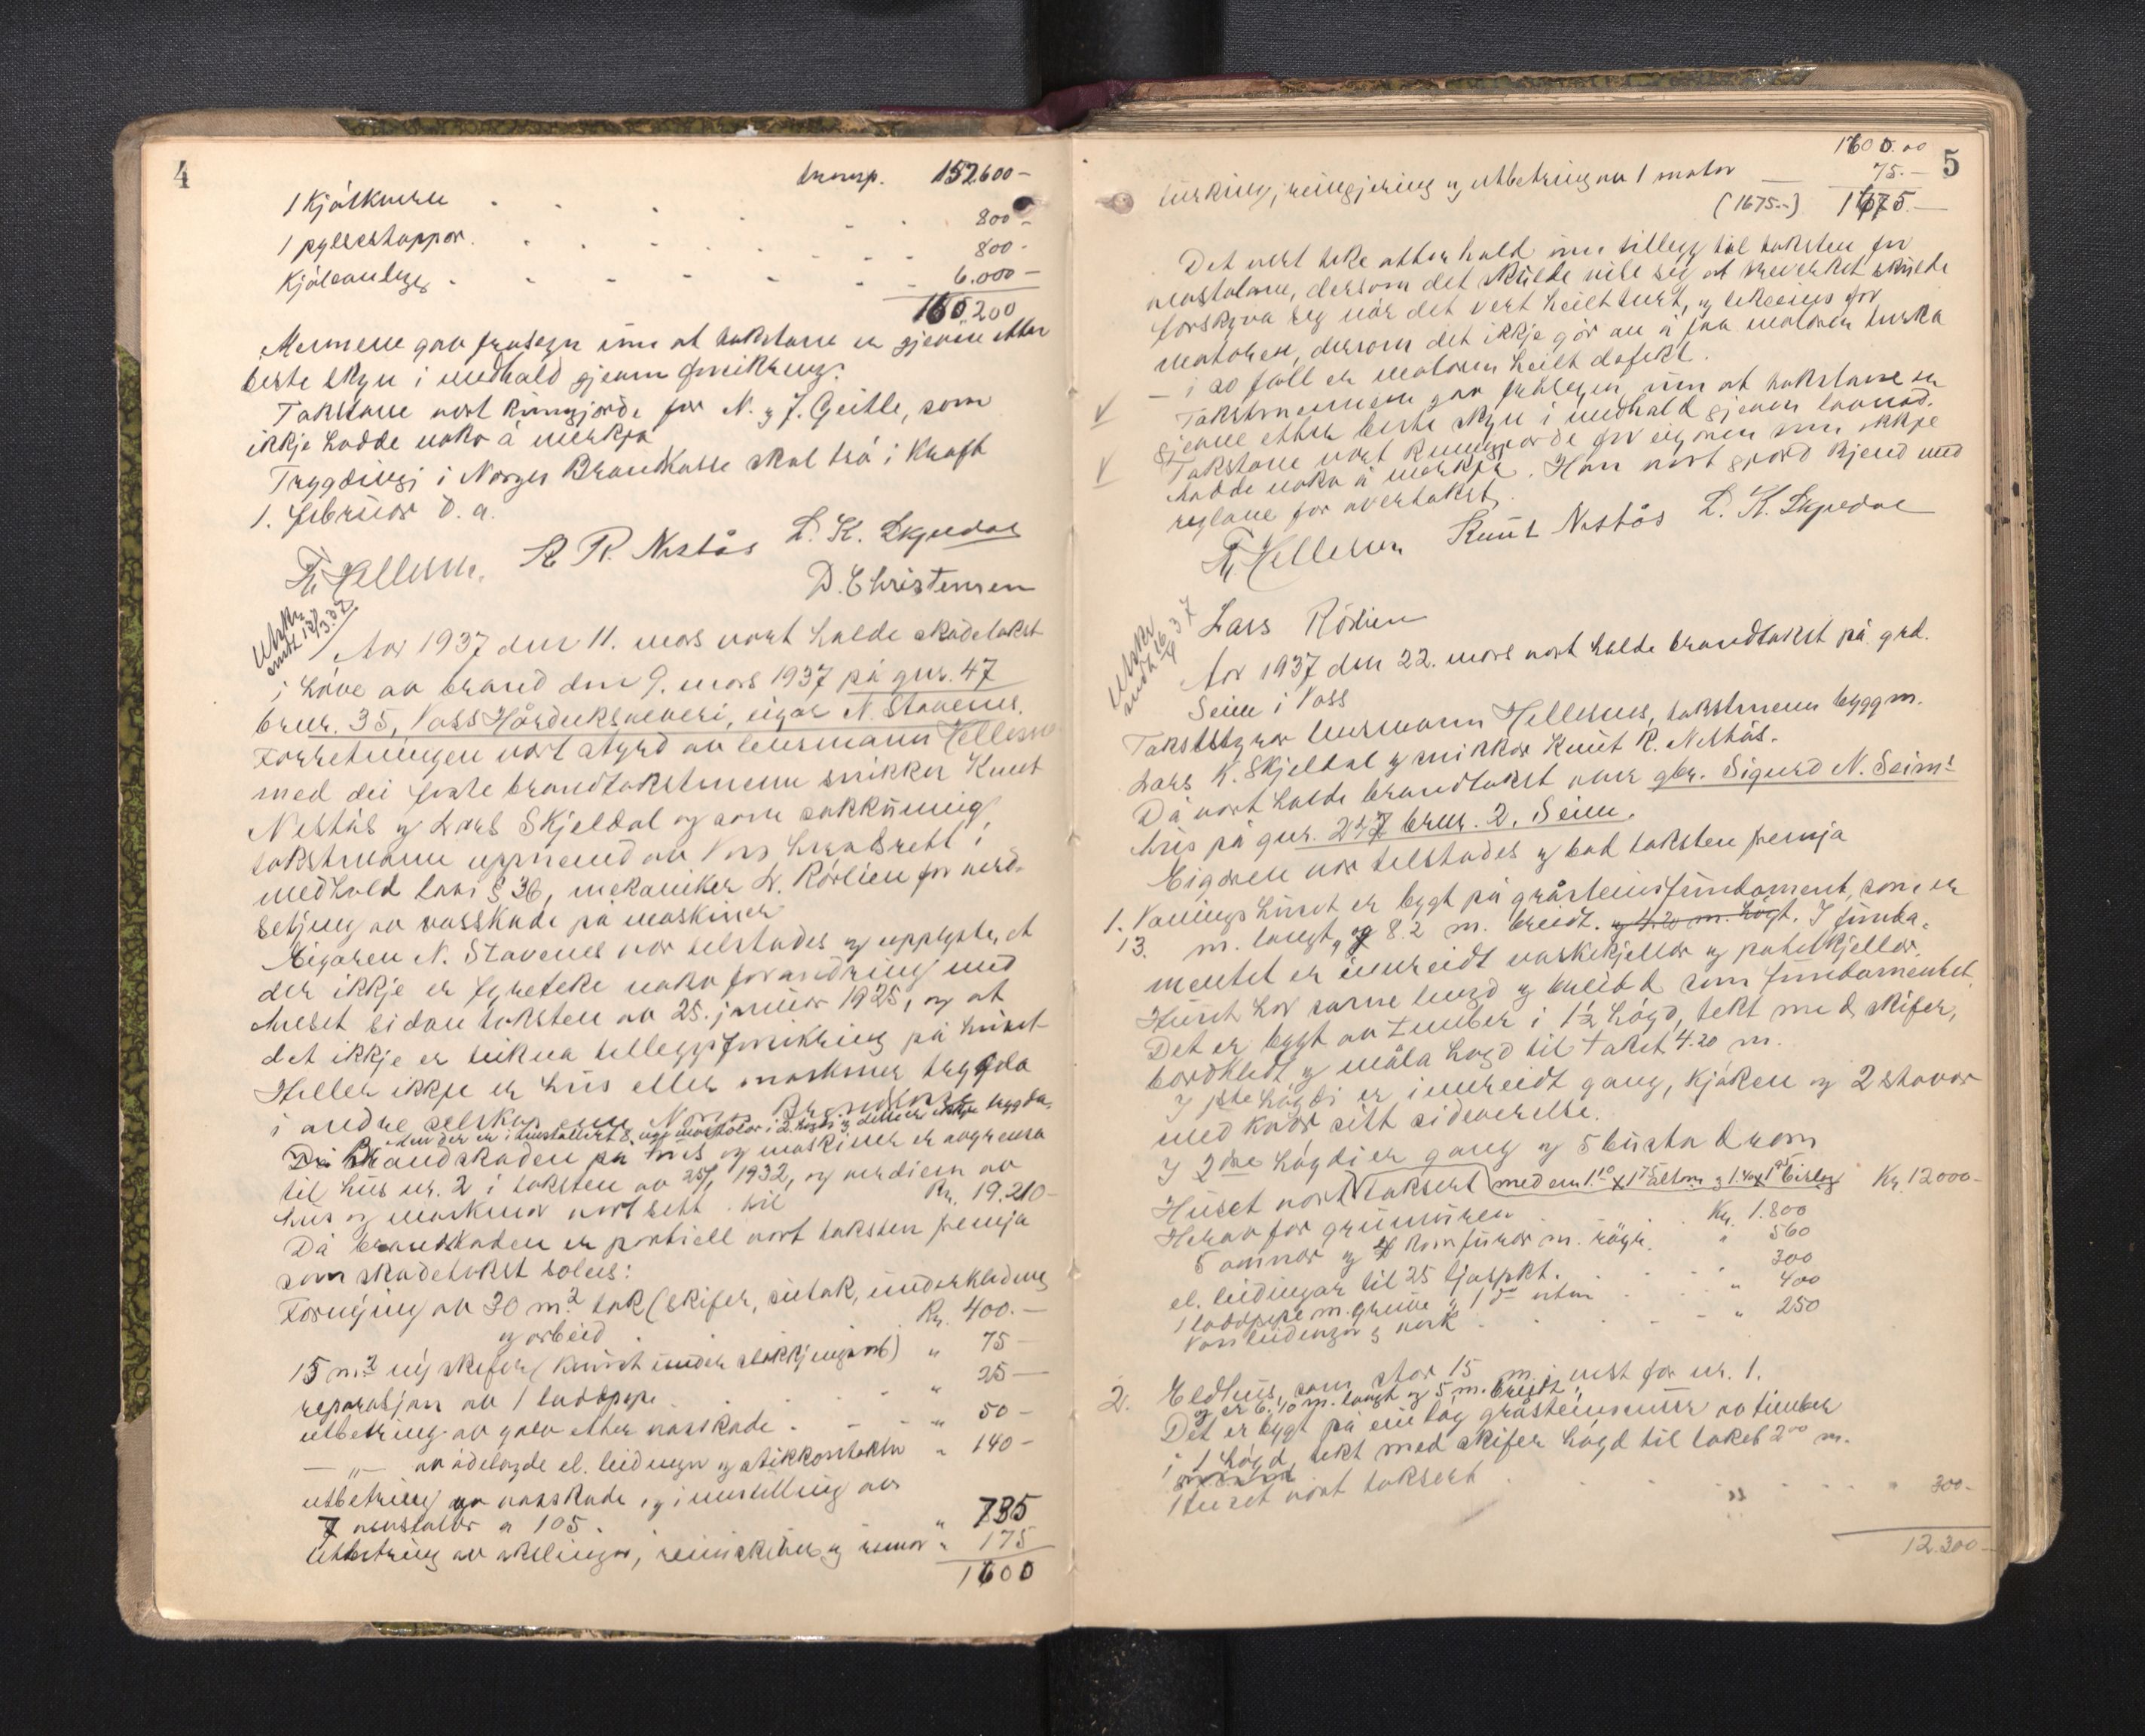 4
transp. 152600 –
1 Kjøtkvern 800 –
1 pylsestappar 800 –
Kjøleanlegg 6.000 –
160.200
Mennene gav frasegn um at takstane er gjevne etter
beste skyn i medhald gjevne
Takstane vart kunngjorde for N. og J. Geitle, som
ikkje hadde noko å merkja
Tryggdingi i Norges Brandkasse skal trå i Kraft
1. februar d. a.
Th Hellesnes. K R. Nestås L. K. Skjeldal
D. Christensen
Utskr. sendt 12/3.37.
Aar 1937 den 11. mars vart halde skadetakst
i høve av brand den 9. mars 1937 på gnr. 47
brnr. 35, Voss Hårduksveveri, eigar N. Stavenes.
Forretningen vart styrd av lensmann Hellesnes
med dei faste brandtakstmenn snikker Knut
Nestås og Lars Skjeldal og som sakkunnig
takstmann uppnemnd av Voss heradsrett i
medhold lovi § 36, mekaniker L. Rørlien for verd-
setjing av vasskade på maskiner
Eigaren N. Stavenes var tilstades og upplyste, at
der ikkje er fyreteke noko forandring med
huset sidan taksten av 25. januar 1925, og at
det ikkje er teikna tilleggsforsikring på huset
Heller ikkje er hus eller maskiner trygda
i andre selskap enn Norges Brandkasse
men der er installert 8 nye i 2. høgdi og desse er ikkje trygda.
Då Brandskaden på hus og maskiner er avgrensa
til hus nr. 2 i taksten av 25/1 1932, og verdien av
hus og maskiner vart sett til Kr. 19.210 –
Då brandskaden er partiell vart taksten fremja
som skadetakst soleis:
Fornying av 30 m.² tak (skifer, sutak, underkledning
og arbeid Kr. 400. –
15 m.² ny skifer (knust under sløkkjingsarb) " 75 –
reparasjon av 1 luftpipe " 25 –
utbetring av golv etter vasskade " 50 –
— " — av ødelagde el. leidningar og stikkontakter " 140 –
utbetring av vasskade, og innstilling av
7 vevstolar a 105. " 735
Utbetring av akslingar, reimskiver og reimar " 175
1600
5
1600.00
turking, reingjering og utbetring av 1 motor — 75. –
(1675.–) 1675. –
Det vert teke atterhald um tillegg til taksten for
vevstolane, dersom det skulde vise seg at treverket skulde
forskyva seg når det vert heilt turt, og likeeins for
motoren, dersom det ikkje går an å faa motoren turka
– i so fall er motoren heilt defekt.
Takstmennene gav frasegn um at takstane er
gjevne etter beste skyn i medhald gjeven lovnad.
Takstane vart kunngjorde for eigaren som ikkje
hadde noko å merkja. Han vart gjord kjend med
reglane for overtakst.
Th Hellesnes Knut Nestås L. K. Skjeldal
Lars Rörlien
Utskr sendt 26/4 37
Aar 1937 den 22. mars vart halde brandtakst på grd.
Seim i Voss
Takststyrar lensmann Hellesnes, takstmenn byggm.
Lars K. Skjeldal og snikkar Knut R. Nestås.
Då vart halde brandtakst over gbr. Sigurd N. Seims
hus på gnr. 247 brnr. 2, Seim.
Eigaren var tilstades og bad taksten fremja
1. Vaaningshuset er bygt på gråsteinsfundament, som er
13. m. langt, og 8.2 m. breidt. og 4.20 m. høgt. I funda-
mentet er innreidt vaskekjellar og potetkjellar.
Huset har same lengd og breidd som fundamentet.
Det er bygt av tømber i 1½ høgd, tekt med skifer,
bordkledt og måla høgd til taket 4.20 m.
I 1ste høgdi er innreidt gang, kjøken og 2 stovor
med kvar sitt sideverelse.
I 2dre høgdi er gang og 5 bustadrom
Huset vart taksert med ein 1.10 x 1.75 altan og 1.40 x 1.95 bislag Kr. 12000 –
Herav for grunnmuren Kr. 1.800
5 omnar og 4 komfurar m. røyr. " 560
el. leidningar til 25 ljospkt. 300
1 luftpipe m. grunn og 1 do uten " 400
Vassleidningar og vask " 250
2. Eldhus, som står 15 m. vest for nr. 1.
og er 6.40 m. langt og 5 m. breidt.
Det er bygt på ein låg gråsteinsmur av timber
i 1 høgd, tekt med skifer høgd til taket 2.00 m.
Huset vart taksert " 300 –
12.300 –